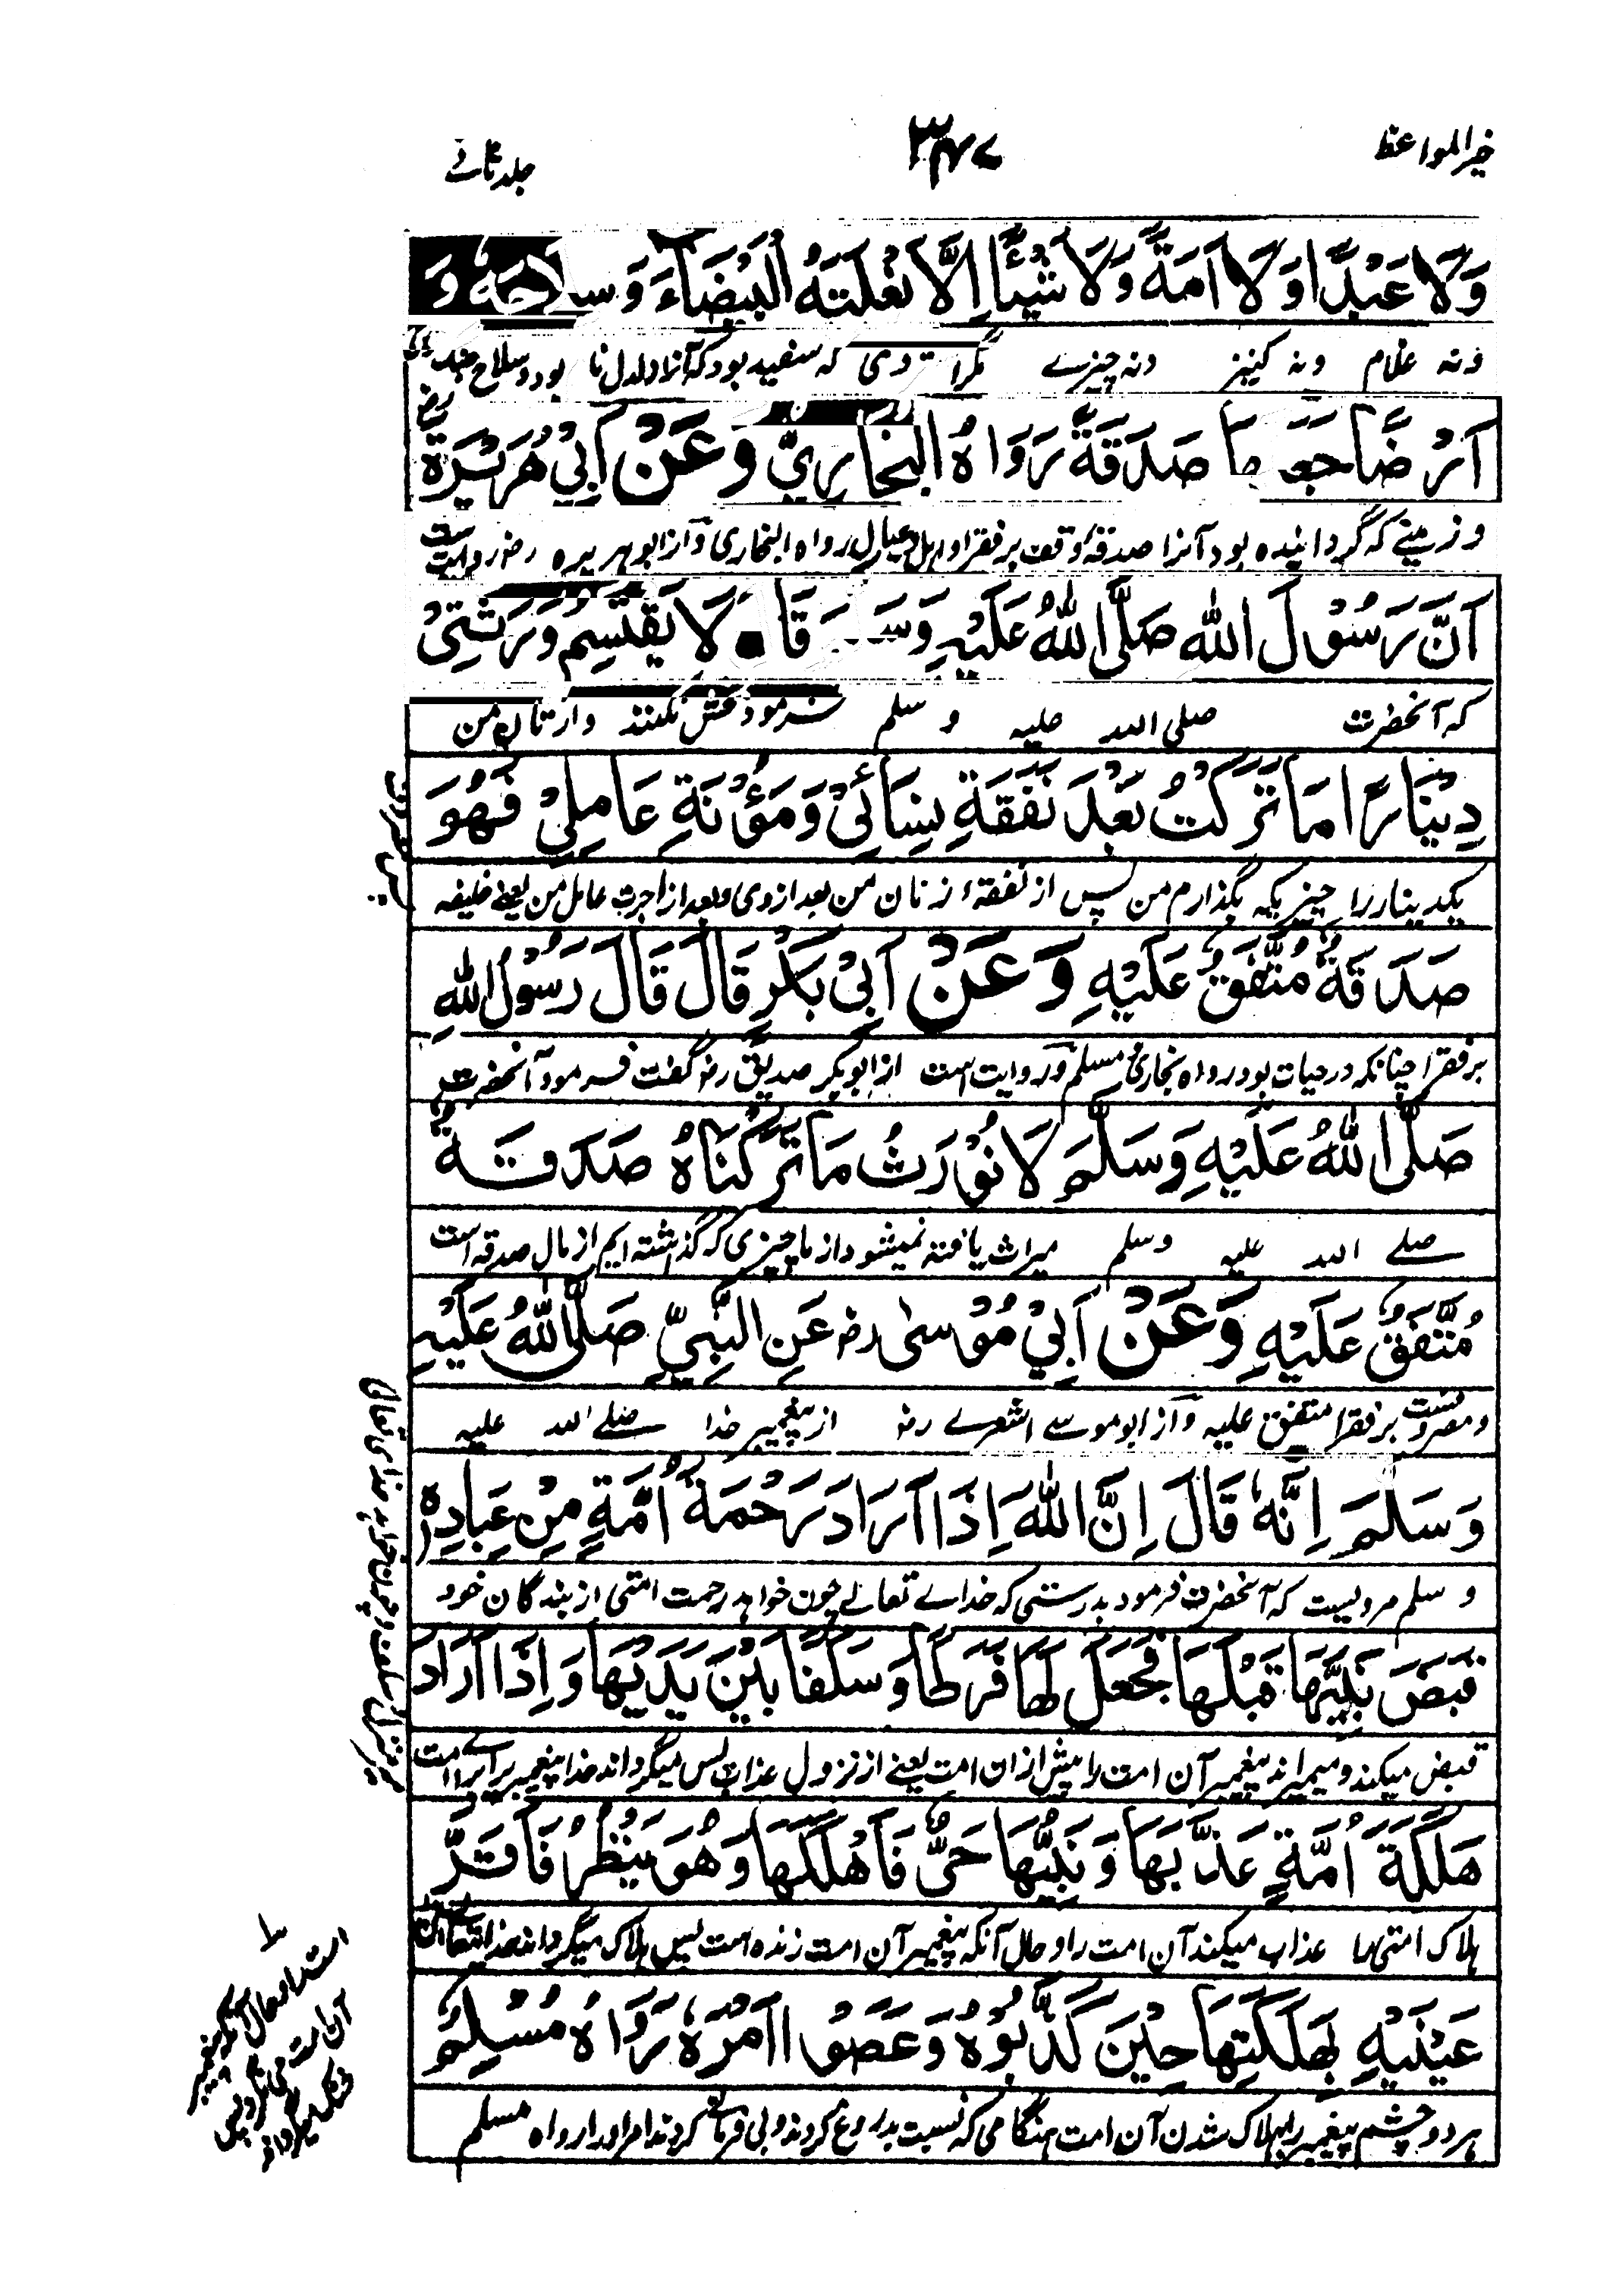 خیرالمواعظ
۳۴۷
جلد ثانے
وَلَا عَبْدًا وَلَا اَمَةً وَلَا شَيْئًا اِلَّا بَغْلَتَهُ الْبَيْضَاءَ وَسِلَاحَهُ وَ
ونہ غلام ونہ کنیز ونہ چیزے مگر استرے کہ سفید بود کہ آنرا دلدل نام بود و سلاح جنگ
اَرْضًا جَعَلَهَا صَدَقَةً رَوَاهُ الْبُخَارِيُّ وَعَنْ اَبِيْ هُرَيْرَةَ رض
و زمینے کہ گردانیدہ بود آنرا صدقہ وقف بر فقرا و اہل و عیال رواہ البخاری و از ابو ہریرہ رضہ روایت است
اَنَّ رَسُوْلَ اللهِ صَلَّى اللهُ عَلَيْهِ وَسَلَّمَ قَالَ لَا يَقْتَسِمُ وَرَثَتِيْ
کہ آنحضرت صلی اللہ علیہ و سلم فرمود بخش نکنند وارثان من
دِيْنَارًا مَا تَرَكْتُ بَعْدَ نَفَقَةِ نِسَائِيْ وَمَؤُنَةِ عَامِلِيْ فَهُوَ
یکدینار را چیزیکہ بگذارم من پس از نفقہ زنان من بعد از وی و بعد از اجرت عامل من یعنے خلیفہ
صَدَقَةٌ مُتَّفَقٌ عَلَيْهِ وَعَنْ اَبِيْ بَكْرٍ قَالَ قَالَ رَسُوْلُ اللهِ
بر فقرا چنانکہ در حیات بود رواہ بخاری و مسلم و روایت است از ابوبکر صدیق رضہ گفت فرمود آنحضرت
صَلَّى اللهُ عَلَيْهِ وَسَلَّمَ لَا نُوْرَثُ مَا تَرَكْنَاهُ صَدَقَةٌ
صلے اللہ علیہ وسلم میراث یافتہ نمیشود از ما چیزی کہ گذاشتہ ایم از مال صدقہ است
مُتَّفَقٌ عَلَيْهِ وَعَنْ اَبِيْ مُوْسٰى رضہ عَنِ النَّبِيِّ صَلَّى اللهُ عَلَيْهِ
و مصروفست بر فقرا متفق علیہ و از ابو موسے اشعرے رضہ از پیغمبر خدا صلے اللہ علیہ
وَسَلَّمَ اِنَّهٗ قَالَ اِنَّ اللهَ اِذَا اَرَادَ رَحْمَةَ اُمَّةٍ مِنْ عِبَادِهٖ
و سلم مرویست کہ آنحضرت فرمود بدرستی کہ خداے تعالے چون خواہد رحمت امتی از بندگان خود
قَبَضَ نَبِيَّهَا قَبْلَهَا فَجَعَلَ لَهَا فَرَطًا وَسَلَفًا بَيْنَ يَدَيْهَا وَاِذَا اَرَادَ
قبض میکند و میمیراند پیغمبر آن امت را پیش ازان امت یعنے از نزول عذاب پس میگرداند خدا پیغمبر را براے امت
هَلَكَةَ اُمَّةٍ عَذَّبَهَا وَنَبِيُّهَا حَيٌّ فَاَهْلَكَهَا وَهُوَ يَنْظُرُ فَاَقَرَّ
ہلاک امتی را عذاب میکند آن امت را و حال آنکہ پیغمبر آن امت زندہ است پس ہلاک میگرداند خدا تعالے
عَيْنَيْهِ بِهَلَكَتِهَا حِيْنَ كَذَّبُوْهُ وَعَصَوْا اَمْرَهٗ رَوَاهُ مُسْلِمٌ
ہر دو چشم پیغمبر را بہلاک شدن آن امت ہنگامی کہ نسبت بدروغ کردند و بی فرمانی کردند امر او را رواہ مسلم